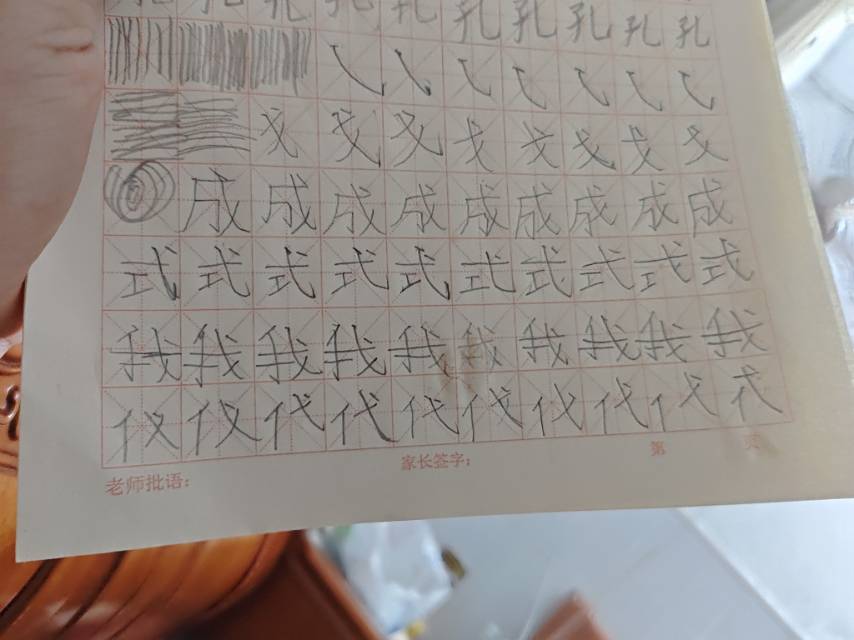 孔 孔 孔 孔 孔 孔 孔 孔 孔 孔
戈 戈 戈 戈 戈 戈 戈 戈
成 成 成 成 成 成 成 成 成
式 式 式 式 式 式 式 式 式 式
我 我 我 我 我 我 我 我 我 我
代 代 代 代 代 代 代 代 代 代
老师批语: 家长签字: 第 页